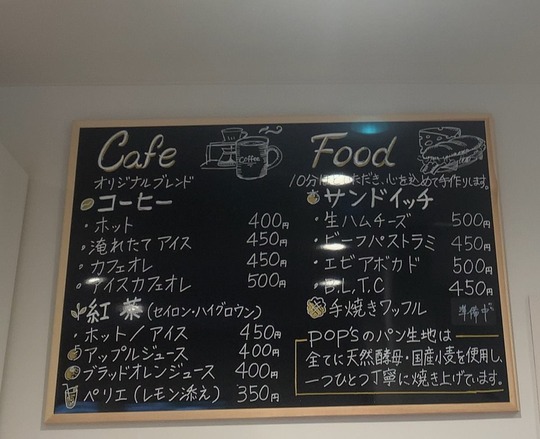 Cafe
Coffee
オリジナルブレンド
コーヒー
・ホット 400円
・淹れたて アイス 450円
・カフェオレ 450円
・アイスカフェオレ 500円
紅茶(セイロン・ハイグロウン)
ホット/アイス 450円
アップルジュース 400円
ブラッドオレンジジュース 400円
ペリエ(レモン添え) 350円
Food
10分ほどいただき、心を込めて手作ります。
サンドイッチ
・生ハムチーズ 500円
・ビーフパストラミ 450円
・エビアボカド 500円
・B.L.T.C 450円
手焼きワッフル 準備中
POP'sのパン生地は
全てに天然酵母・国産小麦を使用し、
一つひとつ丁寧に焼き上げています。